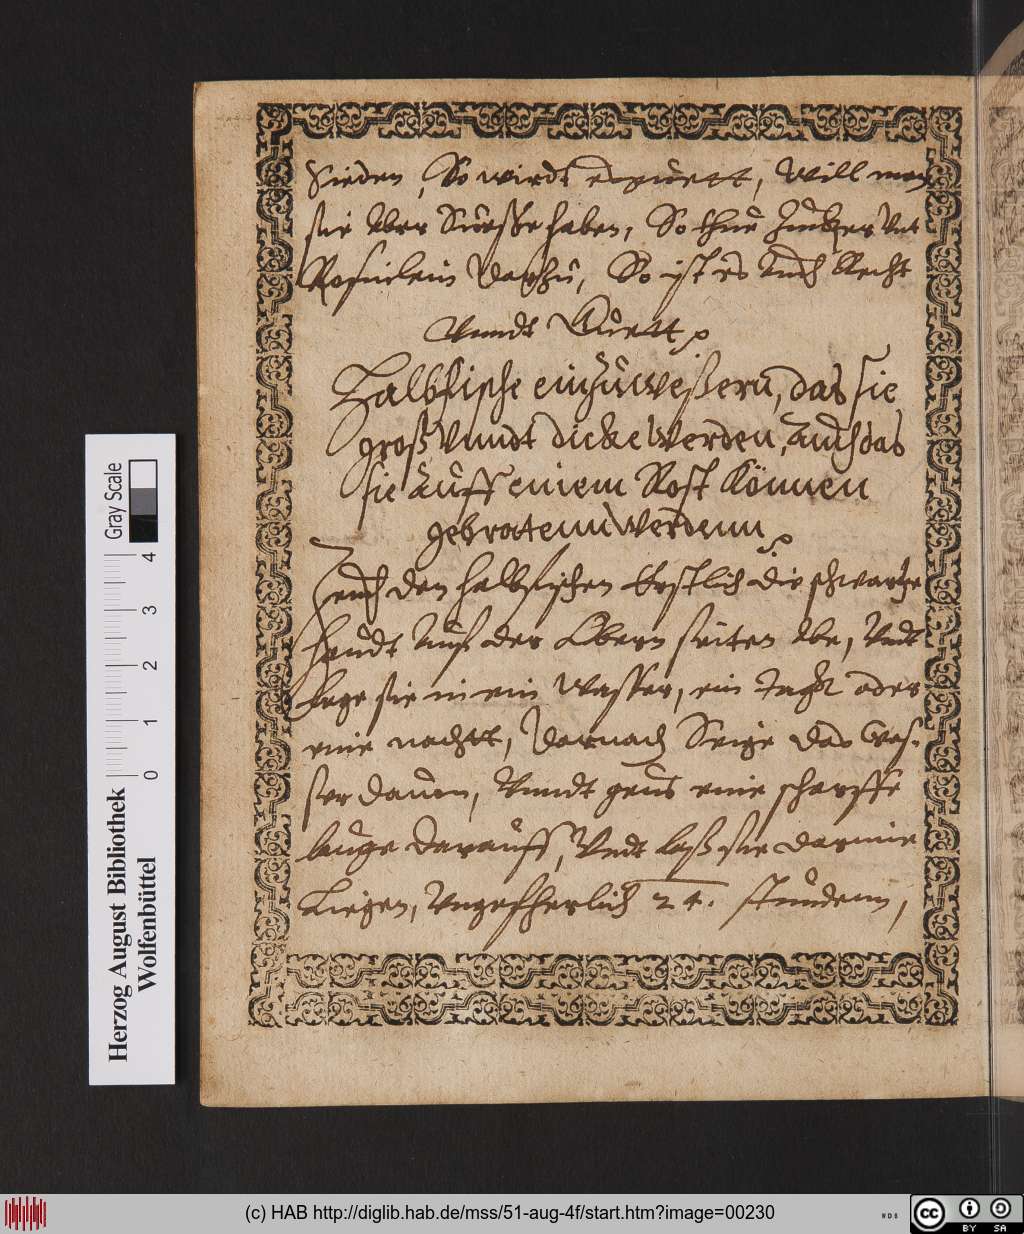 Sieden, So wirdt es guett, Will man
sie Aber Suesse haben, So thue Zucker Unt
Rosinlein Darzu, So ist es Auch Recht
Vnndt Guett
Halbfische einzuweßern, das sie
groß Vnndt dicke Werden, Auch das
sie Auff einem Rost Können
gebratenn Werdenn
Zeuch den halbfischen Erstlich die schwartze
haudt Auf der Obern seiten Abe, Undt
Lege sie in ein Wasser, ein tagk oder
eine nachtt, Darnach Seige das Was-
ser Dauon, Vnndt geus eine scharffe
lauge Darauff, Vndt laß sie Darinne
Liegen, Ungefherlich 24. stundenn,
Gray Scale
0 1 2 3 4
Herzog August Bibliothek
Wolfenbüttel
(c) HAB http://diglib.hab.de/mss/51-aug-4f/start.htm?image=00230
WDB
cc BY SA